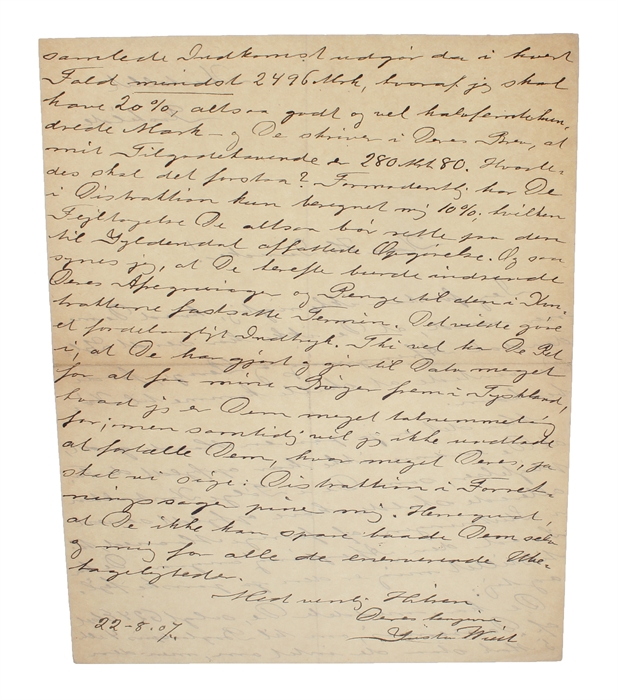 samlede Indkomst udgør da i hvert
Fald mindst 2496 Mrk, hvoraf jeg skal
have 20%, altsaa godt og vel halvfemtehun-
drede Mark – og De skriver i Deres Brev, at
mit Tilgodehavende er 280 Mk 80. Hvorle-
des skal det forstaa? Formodentlig har De
i Distraktion kun beregnet mig 10%, hvilken
Fejltagelse De altsaa bør rette paa den
til Gyldendal affattede Opgørelse. Og saa
synes jeg, at De herefter burde indsende
Deres Afregninger og Penge til den i Kon-
trakterne fastsatte Termin. Det vilde gøre
et fordelagtigt Indtryk. Thi vel har De Ret
i, at De har gjort og gør til Dato meget
for at faa mine Bøger frem i Tyskland,
hvad jeg er Dem meget taknemmelig
for; men samtidig vil jeg ikke undlade
at fortælle Dem, hvor meget Deres, ja
skal vi sige: Distraktion i Forret-
ningssager piner mig. Herregud,
at De ikke kan spare baade Dem selv
og mig for alle de enerverende Ube-
hageligheder.
Med venlig Hilsen
Deres
Gustav Wied
22-8.07